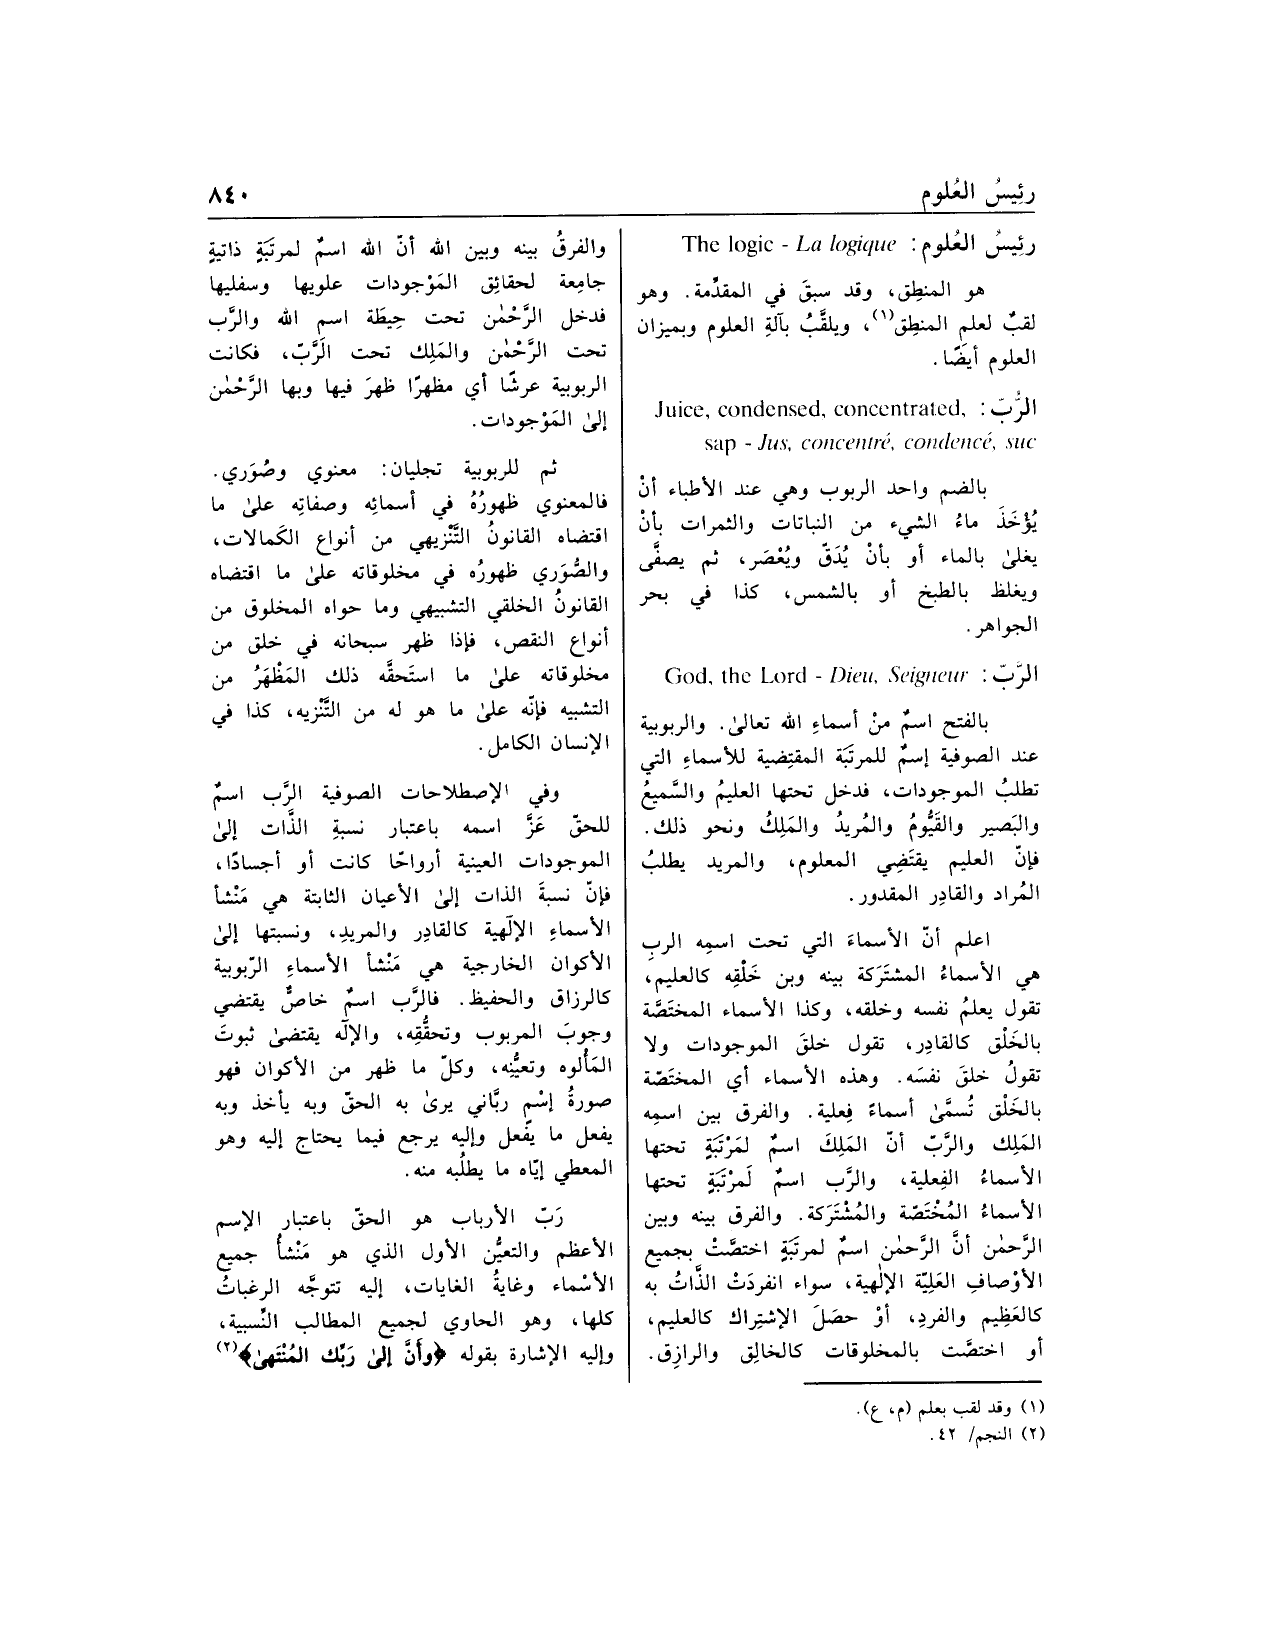 رئيسُ العُلوم
٨٤٠
رئيسُ العُلوم: The logic - La logique
هو المنطِق، وقد سبقَ في المقدِّمة. وهو
لقبٌ لعلم المنطِق(١)، ويلقَّبُ بآلةِ العلوم وبميزان
العلوم أيضًا.
الرُّبّ: Juice, condensed, concentrated,
sap - Jus, concentré, condencé, suc
بالضم واحد الربوب وهي عند الأطباء أنْ
يُؤْخَذَ ماءُ الشيء من النباتات والثمرات بأنْ
يغلىٰ بالماء أو بأنْ يُدَقّ ويُعْصَر، ثم يصفَّى
ويغلظ بالطبخ أو بالشمس، كذا في بحر
الجواهر.
الرَّبّ: God, the Lord - Dieu, Seigneur
بالفتح اسمٌ منْ أسماءِ الله تعالىٰ. والربوبية
عند الصوفية إسمٌ للمرتَبَة المقتِضية للأسماءِ التي
تطلبُ الموجودات، فدخل تحتها العليمُ والسَّميعُ
والبَصير والقَيُّومُ والمُريدُ والمَلِكُ ونحو ذلك.
فإنّ العليم يقتَضِي المعلوم، والمريد يطلبُ
المُراد والقادِر المقدور.
اعلم أنّ الأسماءَ التي تحت اسمِه الربِ
هي الأسماءُ المشتَرَكة بينه وبن خَلْقِه كالعليم،
تقول يعلمُ نفسه وخلقه، وكذا الأسماء المختَصَّة
بالخَلْق كالقادِر، تقول خلقَ الموجودات ولا
تقولُ خلقَ نفسَه. وهذه الأسماء أي المختَصّة
بالخَلْق تُسمَّىٰ أسماءً فِعلية. والفرق بين اسمِه
المَلِك والرَّبّ أنّ المَلِكَ اسمٌ لمَرْتَبَةٍ تحتها
الأسماءُ الفِعلية، والرَّب اسمٌ لَمرْتَبَةٍ تحتها
الأسماءُ المُخْتَصّة والمُشْتَركة. والفرق بينه وبين
الرَّحمٰن أنَّ الرَّحمٰن اسمٌ لمرتبَةٍ اختصَّتْ بجميع
الأوْصافِ العَلِيّة الإلٰهية، سواء انفردَتْ الذَّاتُ به
كالعَظِيم والفردِ، أوْ حصَلَ الإشتِراك كالعليم،
أو اختصَّت بالمخلوقات كالخالِق والرازِق.
والفرقُ بينه وبين الله أنّ الله اسمٌ لمرتَبَةٍ ذاتيةٍ
جامِعة لحقائِق المَوْجودات علويها وسفليها
فدخل الرَّحْمٰن تحت حِيطَة اسم الله والرَّب
تحت الرَّحْمٰن والمَلِك تحت الَرَّبّ، فكانت
الربوبية عرشًا أي مظهرًا ظهرَ فيها وبها الرَّحْمٰن
إلىٰ المَوْجودات.
ثم للربوبية تجليان: معنوي وصُوَري.
فالمعنوي ظهورُهُ في أسمائِه وصفاتِه علىٰ ما
اقتضاه القانونُ التَّنْزيهي من أنواع الكَمالات،
والصُّوَري ظهورُه في مخلوقاته علىٰ ما اقتضاه
القانونُ الخلقي التشبيهي وما حواه المخلوق من
أنواع النقص، فإذا ظهر سبحانه في خلق من
مخلوقاته علىٰ ما استَحقَّه ذلك المَظْهَرُ من
التشبيه فإنّه علىٰ ما هو له من التَّنْزيه، كذا في
الإنسان الكامل.
وفي الإصطلاحات الصوفية الرَّب اسمٌ
للحقّ عَزَّ اسمه باعتبار نسبةِ الذَّات إلىٰ
الموجودات العينية أرواحًا كانت أو أجسادًا،
فإنّ نسبةَ الذات إلىٰ الأعيان الثابتة هي مَنْشأ
الأسماءِ الإلَهية كالقادِر والمريدِ، ونسبتها إلىٰ
الأكوان الخارجية هي مَنْشأ الأسماءِ الرّبوبية
كالرزاق والحفيظ. فالرَّب اسمٌ خاصٌّ يقتضي
وجوبَ المربوب وتحقُّقِه، والإلَه يقتضىٰ ثبوتَ
المَأْلوه وتعيُّنِه، وكلّ ما ظهر من الأكوان فهو
صورةُ إسْم ربَّاني يرىٰ به الحقّ وبه يأخذ وبه
يفعل ما يفعل وإليه يرجع فيما يحتاج إليه وهو
المعطي إيّاه ما يطلُبه منه.
رَبّ الأرباب هو الحقّ باعتبار الإسم
الأعظم والتعيُّن الأول الذي هو مَنْشأُ جميع
الأسْماء وغايةُ الغايات، إليه تتوجَّه الرغباتُ
كلها، وهو الحاوي لجميع المطالب النِّسبية،
وإليه الإشارة بقوله ﴿وأَنَّ إلىٰ رَبِّك المُنْتَهىٰ﴾(٢)
(١) وقد لقب بعلم (م، ع).
(٢) النجم/ ٤٢.